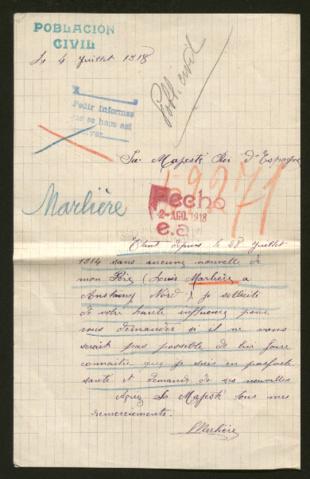 POBLACIÓN
CIVIL
Le 4 Juillet 1918
Pobl. civil
Pedir informes
Sa Majesté Roi d'Espagne
59271
Marlière
Fecho
2-AGO.1918
e.a.
Étant depuis le 28 Juillet
1914 sans aucune nouvelle de
mon Père (Louis Marlière a
Nord) je sollicite
de votre haute influence pour
vous demander si il ne vous
serait pas possible de lui faire
connaitre que je suis en parfaite
santé et demande de ses nouvelles
Sa Majesté tous mes
remerciements.
Marlière